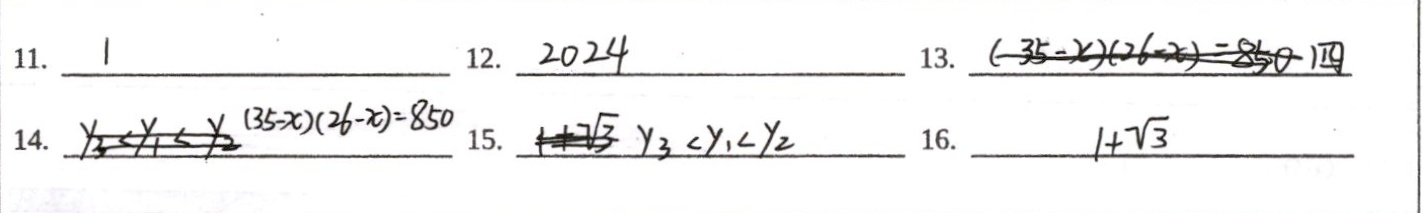 11. 1 12. 2024 13. (35-x)(26-x)=850 四
14. y₃<y₁<y₂ (35-x)(26-x)=850 15. 1+√3 y₃<y₁<y₂ 16. 1+√3